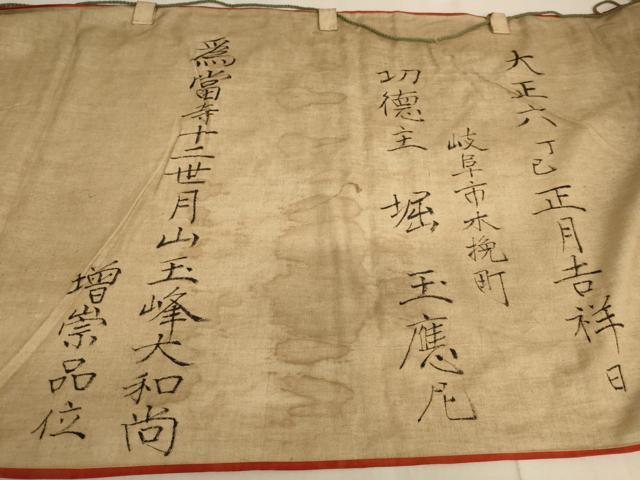 大正六丁巳正月吉祥日
岐阜市木挽町
功德主 堀玉應尼
爲當寺十二世月山玉峰大和尚
増崇品位